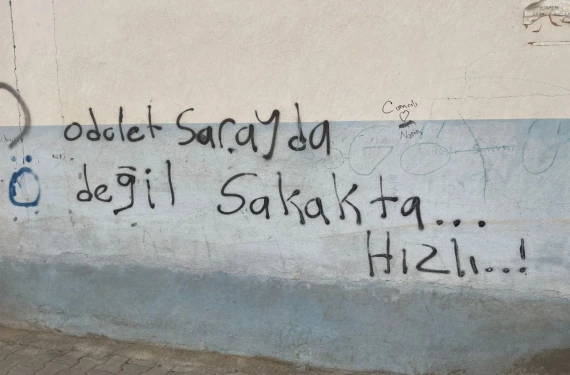 adalet Sarayda
değil Sakakta...
Hızlı..!
Ö